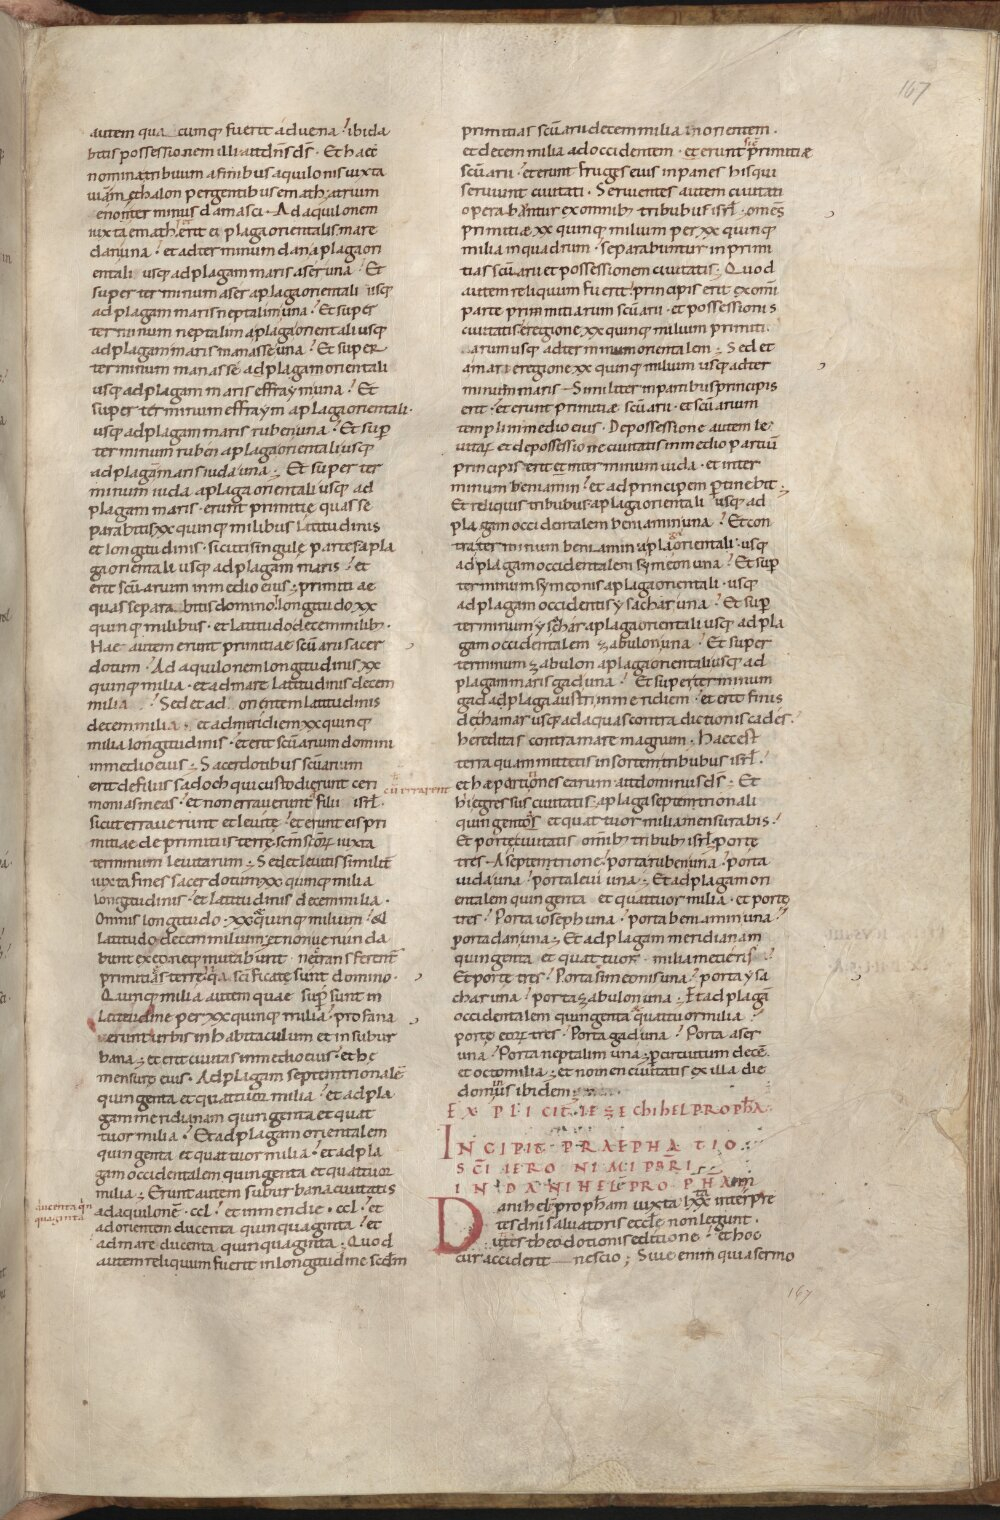 167
autem quacumq; fuerit advena · ibi da
bitis possessionem illi ait dn̄s ds̄ · Et haec
nomina tribuum a finibus aquilonis iuxta
viam ethalon pergentibus emath · atrium
enon terminus damasci · Ad aquilonem
iuxta emath · erit ei plaga orientalis mare
dan una · et ad terminum dan a plaga ori
entali usq; ad plagam maris aser una · Et
super terminum aser a plaga orientali usq;
ad plagam maris neptalim una · Et super
terminum neptalim a plaga orientali usq;
ad plagam maris manasse una · Et super
terminum manasse a plaga orientali
usq; ad plagam maris effraym una · Et
super terminum effraym a plaga orientali
usq; ad plagam maris ruben una · Et sup̄
terminum ruben a plaga orientali usq;
ad plagam maris iuda una · Et super ter
minum iuda a plaga orientali usq; ad
plagam maris · erunt primitię quas se
parabitis xx quinq; milibus latitudinis
et longitudinis · sicuti singulę partes a pla
ga orientali usq; ad plagam maris · et
erit scūarium in medio eius · primitiae
quas separabitis domino · longitudo xx
quinq; milibus · et latitudo decem milib;
Hae autem erunt primitiae scūarii sacer
dotum · Ad aquilonem longitudinis xx
quinq; milia · et ad mare latitudinis decem
milia · Sed et ad orientem latitudinis
decem milia · et ad meridiem xx quinq;
milia longitudinis · et erit scūarium domini
in medio eius · Sacerdotibus scūarium
erit de filiis sadoch qui custodierunt ceri
monias meas · et non erraverunt filii isrl̄
cū errarent
sicut erraverunt et levitę · et erunt eis pri
mitiae de primitiis terrę scm̄ scōrum iuxta
terminum levitarum · Sed et levitis similit̄
iuxta fines sacerdotum xx quinq; milia
longitudinis · et latitudinis decem milia ·
Omnis longitudo · xx quinq; milium · et
latitudo decem milium · et non venunda
bunt ex eo neq; mutabunt · nec transferent̄
primitias terrę · quia scīficatę sunt domino ·
Quinq; milia autem quae sup̄sunt in
latitudine per xx quinq; milia · profana
erunt urbis in habitaculum et in subur
bana · et erit civitas in medio eius · et hę
mensurę eius · Ad plagam septentrionalē
quingenta et quattuor milia · et ad pla
gam meridianam quingenta et quat
tuor milia · Et ad plagam orientalem
quingenta et quattuor milia · et ad pla
gam occidentalem quingenta et quattuor
milia · Erunt autem suburbana civitatis
ducenta qn̄
quaginta
ad aquilonē · ccl · et in meridie · ccl · et
ad orientem ducenta quinquaginta · et
ad mare ducenta quinquaginta · Quod
autem reliquum fuerit in longitudine scdm̄
primitias scūarii decem milia in orientem ·
et decem milia ad occidentem · et erunt sic primitiæ
scūarii · et erunt fruges eius in panes his qui
serviunt civitati · Servientes autem civitati
operabuntur ex omnib; tribubus isrl̄ · omēs
primitiæ xx quinq; milium per xx quinq;
milia in quadrum · separabuntur in primi
tias scūarii et possessionem civitatis · Quod
autem reliquum fuerit · principis erit ex omī
parte primitiarum scūarii · et possessionis
civitatis e regione xx quinq; milium primiti
arum usq; ad terminum orientalem · Sed et
a mari e regione xx quinq; milium usq; ad ter
minum maris · Similiter in partibus principis
erit · et erunt primitiæ scūarii · et scūarium
templi in medio eius · De possessione autem le
vitar̄ et de possessione civitatis in medio partiū
principis erit et inter minum iuda · et inter
minum beniamin · et ad principem p̄tinebit ·
Et reliquis tribubus · a plaga orientali usq; ad
plagam occidentalem beniamin una · Et con
tra terminum beniamin a plaga orientali · usq;
ad plagam occidentalem symeon una · Et sup̄
terminum symeonis a plaga orientali · usq;
ad plagam occidentis ysachar una · Et sup̄
terminum ysachar a plaga orientali usq; ad pla
gam occidentalem zabulon una · Et super
terminum zabulon a plaga orientali usq; ad
plagam maris gad una · Et super terminum
gad ad plaga austri in meridiem · et erit finis
de thamar usq; ad aquas contradictionis cades ·
hereditas contra mare magnum · Haec est
terra quam mittetis in sortem tribubus isrl̄ ·
et hæ partitiones earum · ait dominus ds̄ · Et
hi egressus civitatis · a plaga septentrionali
quingentos et quattuor milia mensurabis ·
Et portę civitatis omib; tribub; isrl̄ portę
tres · A septentrione · porta ruben una · porta
iuda una · porta levi una · Et ad plagam ori
entalem quingenta et quattuor milia · et portę
tres · Porta ioseph una · porta beniamin una ·
porta dan una · Et ad plagam meridianam
quingenta et quattuor · milia metieris ·
Et portę tres · Porta simeonis una · porta ysa
char una · porta zabulon una · Et ad plagā
occidentalem quingenta quattuor milia ·
portę eorum tres · Porta gad una · Porta aser
una · Porta neptalim una · per circuitum decē
et octo milia · et nomen civitatis ex illa die
dominus ibidem
EXPLICIT IEZECHIHEL PROPHĀ
INCIPIT PRAEPHATIO
SCĪ IERONIMI PBRI
IN DANIHELĒ PROPHAM
Danihelē prophām iuxta lxx interpre
tes dnī salvatoris ecclę non legunt ·
utentes theodotionis editione · et hoc
cur acciderit nescio ; Sive enim quia sermo
167